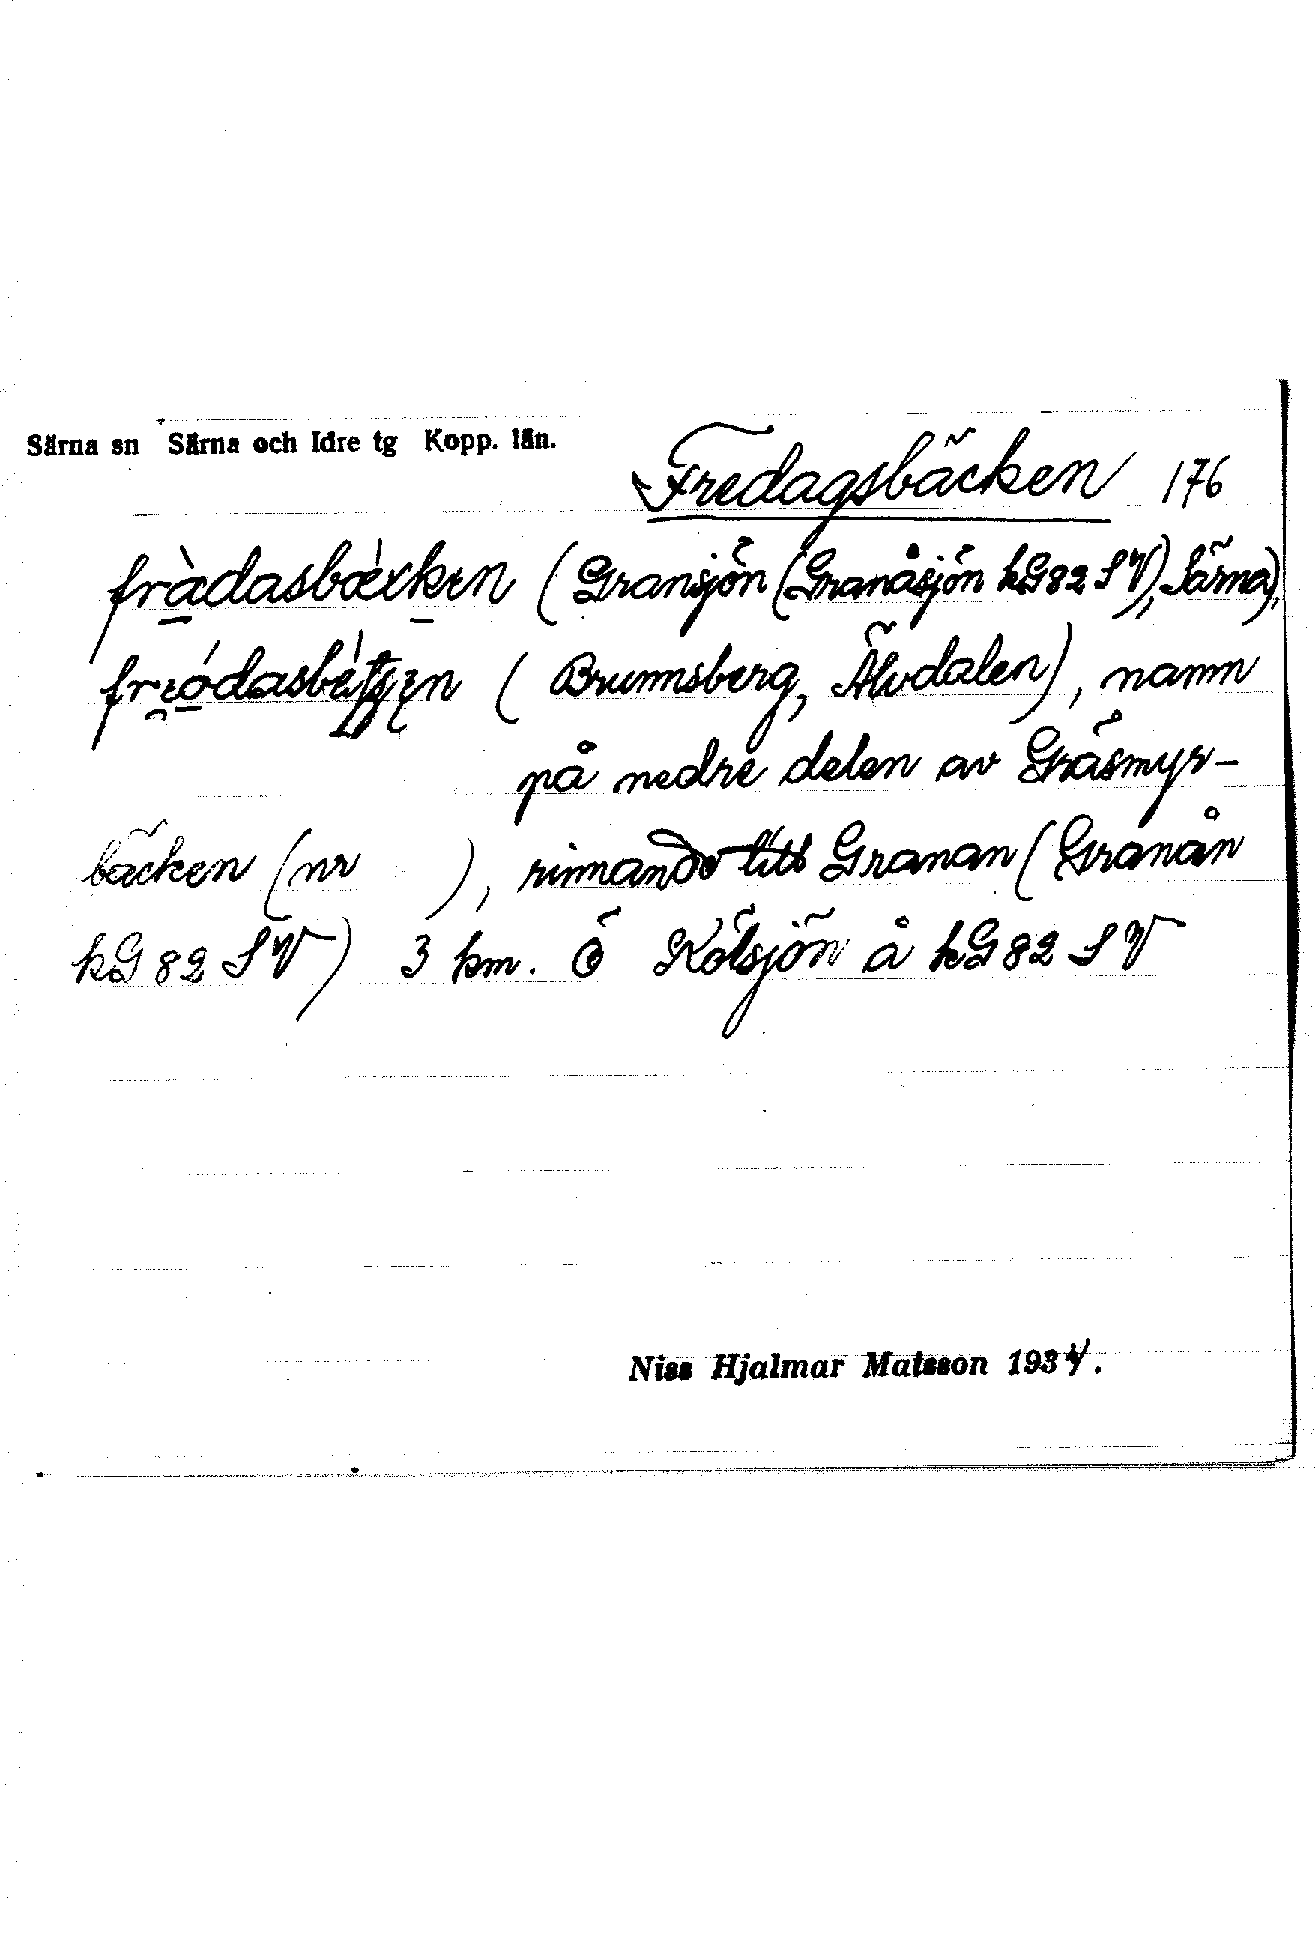 Särna sn Särna och Idre tg Kopp. län.
Fredagsbäcken 176
fràdasbæ̀kken (Gransjön (Granåsjön kG82 SV), Särna),
(Brunnsberg, Älvdalen), namn
på nedre delen av Gräsmyr-
bäcken (nr ), rinnande till Granan (Granån
kG 82 SV) 3 km. Ö Kölsjön å kG 82 SV
Niss Hjalmar Matsson 1934.